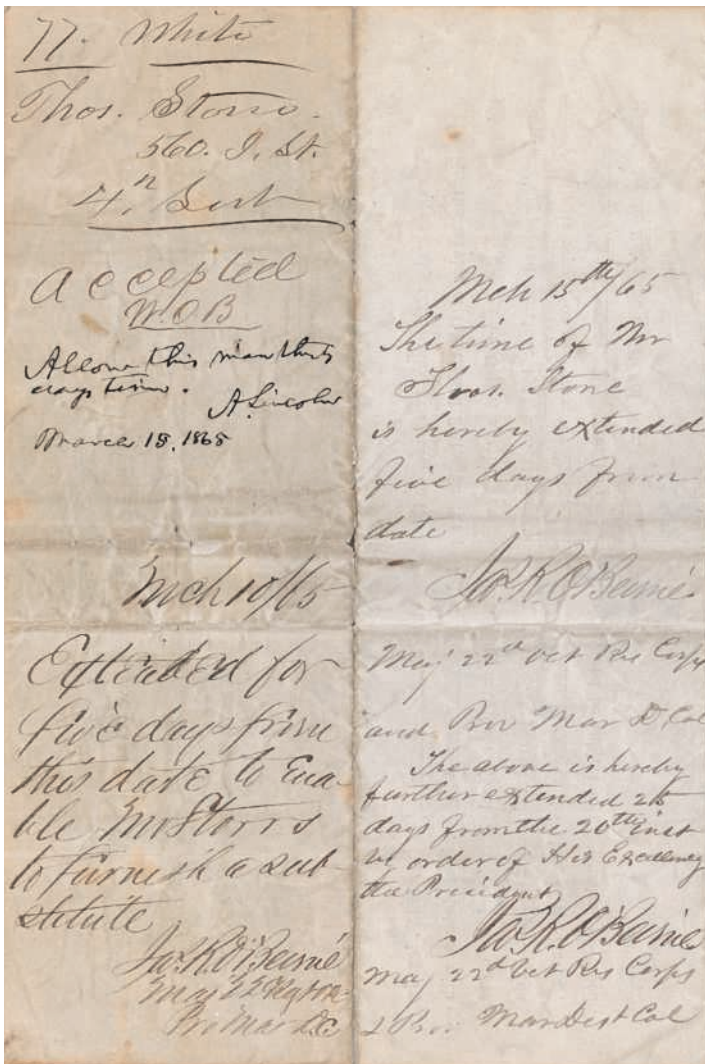 77. White
Thos. Storrs.
560. I. St.
4.
accepted
W.O.B
Allow this man thirty
days time.
A. Lincoln
March 15, 1865
Mch 10/65
Extended for
five days from
this date to ena-
ble Mr Storrs
to furnish a sub-
stitute
Jas. R. O'Beirne
Maj 22
Pro Mar D.C.
Mch 15th/65
The time of Mr
Thos. Stone
is hereby extended
five days from
date
Jas. R. O'Beirne
Maj 22d Vet Res Corps
and Pro Mar D Col
The above is hereby
further extended 25
days from the 20th inst
order of His Excellency
the President
Jas. R. O'Beirne
Maj 22d Vet Res Corps
& Pro. Mar Dist Col